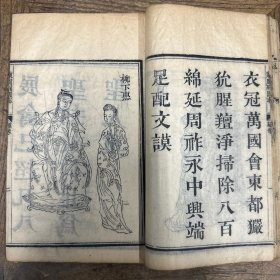 衣冠萬國會東都玁
狁腥羶淨掃除八百
綿延周祚永中興端
足配文謨
柳下惠